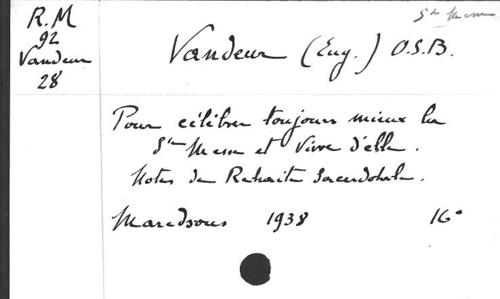 R.M
92
Vandeur
28
Ste Messe
Vandeur (Eug.) O.S.B.
Pour célébrer toujours mieux la
Ste Messe et Vivre d'elle.
Notes de Retraite Sacerdotale.
Maredsous 1938 16°